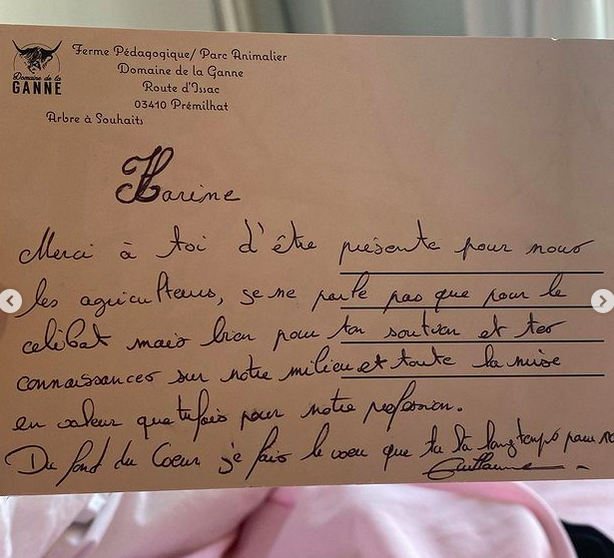 Ferme Pédagogique/ Parc Animalier
Domaine de la Ganne
Route d'Issac
03410 Prémilhat
Arbre à Souhaits
Domaine de la
GANNE
Karine
Merci à toi d'être présente pour nous
les agriculteurs, je ne parle pas que pour le
celibat mais bien pour ton soutien et tes
connaissances sur notre milieu et toute la mise
en valeur que tu fais pour notre profession.
Du fond du Coeur je fais le voeu que tu la longtemps pour
Guillaume